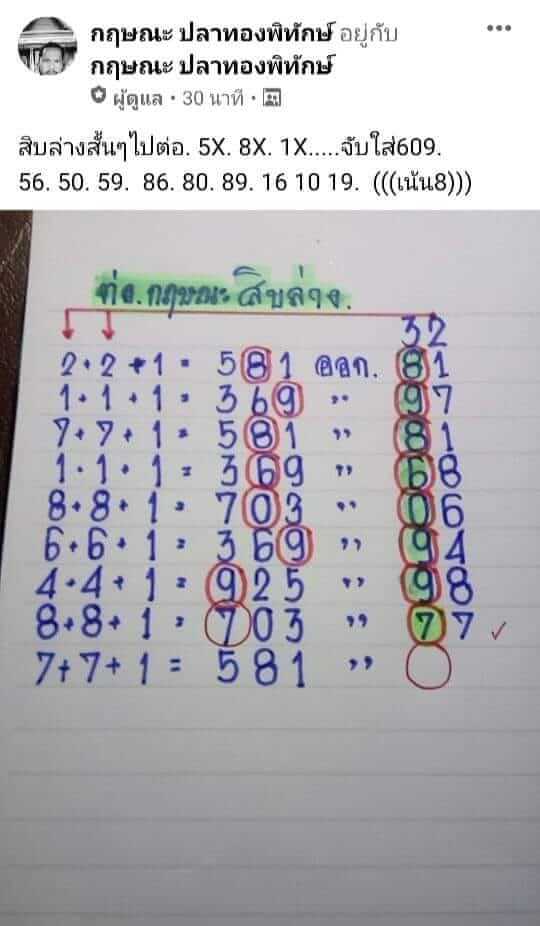 กฤษณะ ปลาทองพิทักษ์ อยู่กับ
กฤษณะ ปลาทองพิทักษ์
ผู้ดูแล · 30 นาที ·
สิบล่างสั้นๆไปต่อ. 5X. 8X. 1X.....จับใส่609.
56. 50. 59. 86. 80. 89. 16 10 19. (((เน้น8)))
ต่อ. กฤษณะ สิบล่าง.
32
2+2+1 = 581 ออก. 81
1+1+1 = 369 " 97
7+7+1 = 581 " 81
1+1+1 = 369 " 68
8+8+1 = 703 " 06
6+6+1 = 369 " 94
4+4+1 = 925 " 98
8+8+1 = 703 " 77 ✓
7+7+1 = 581 "